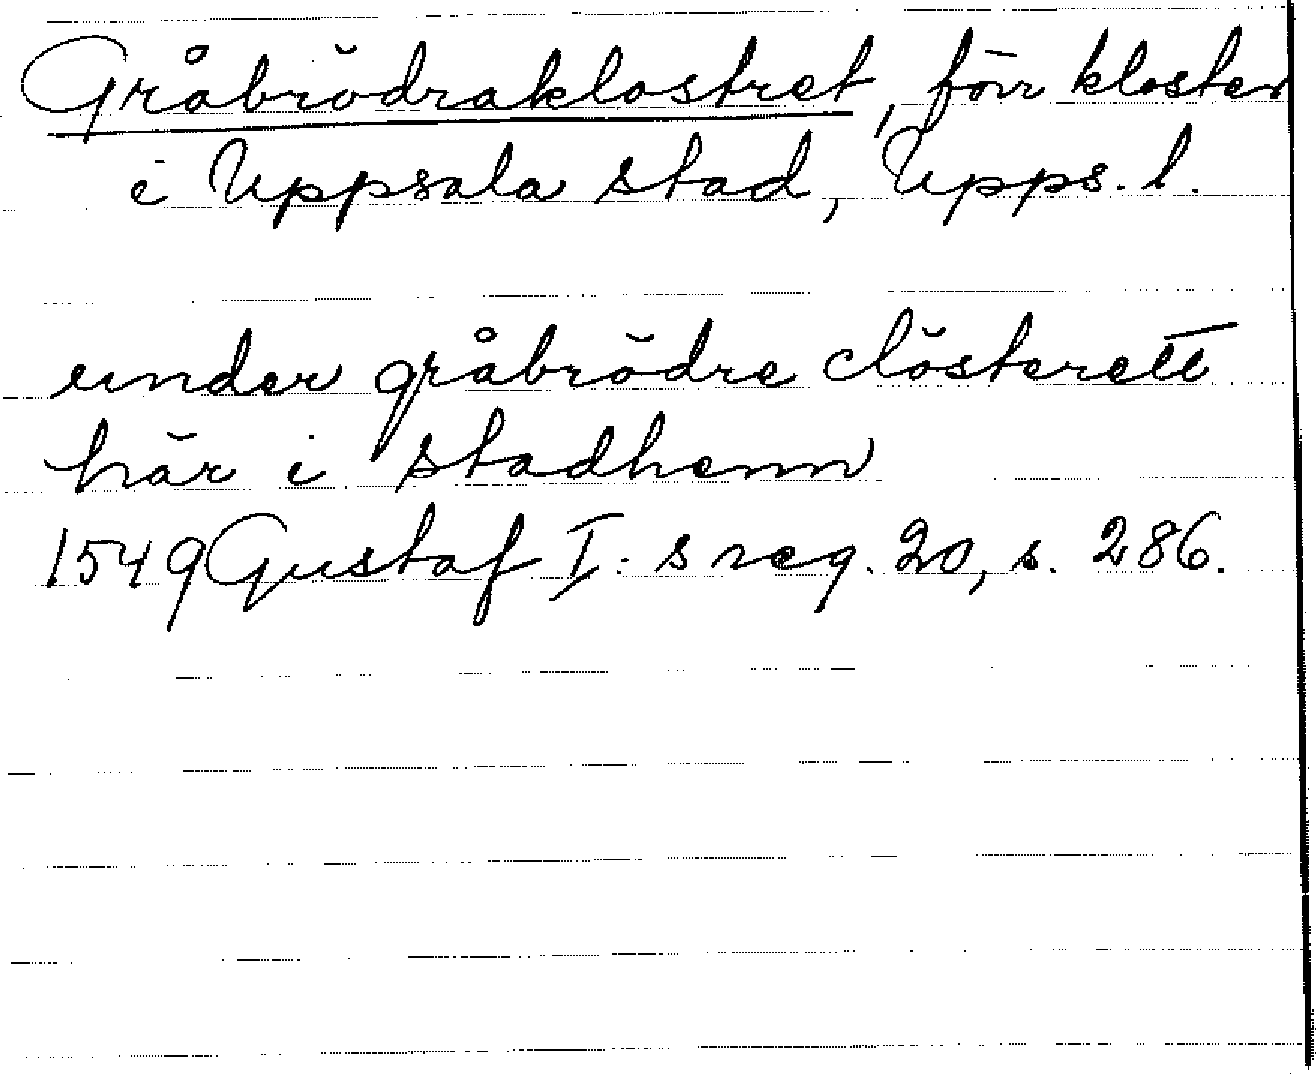 Gråbrödraklostret, förr kloster
i Uppsala stad, Upps. l.
under gråbrödre clösterett
här i stadhenn
1549 Gustaf I:s reg. 20, s. 286.